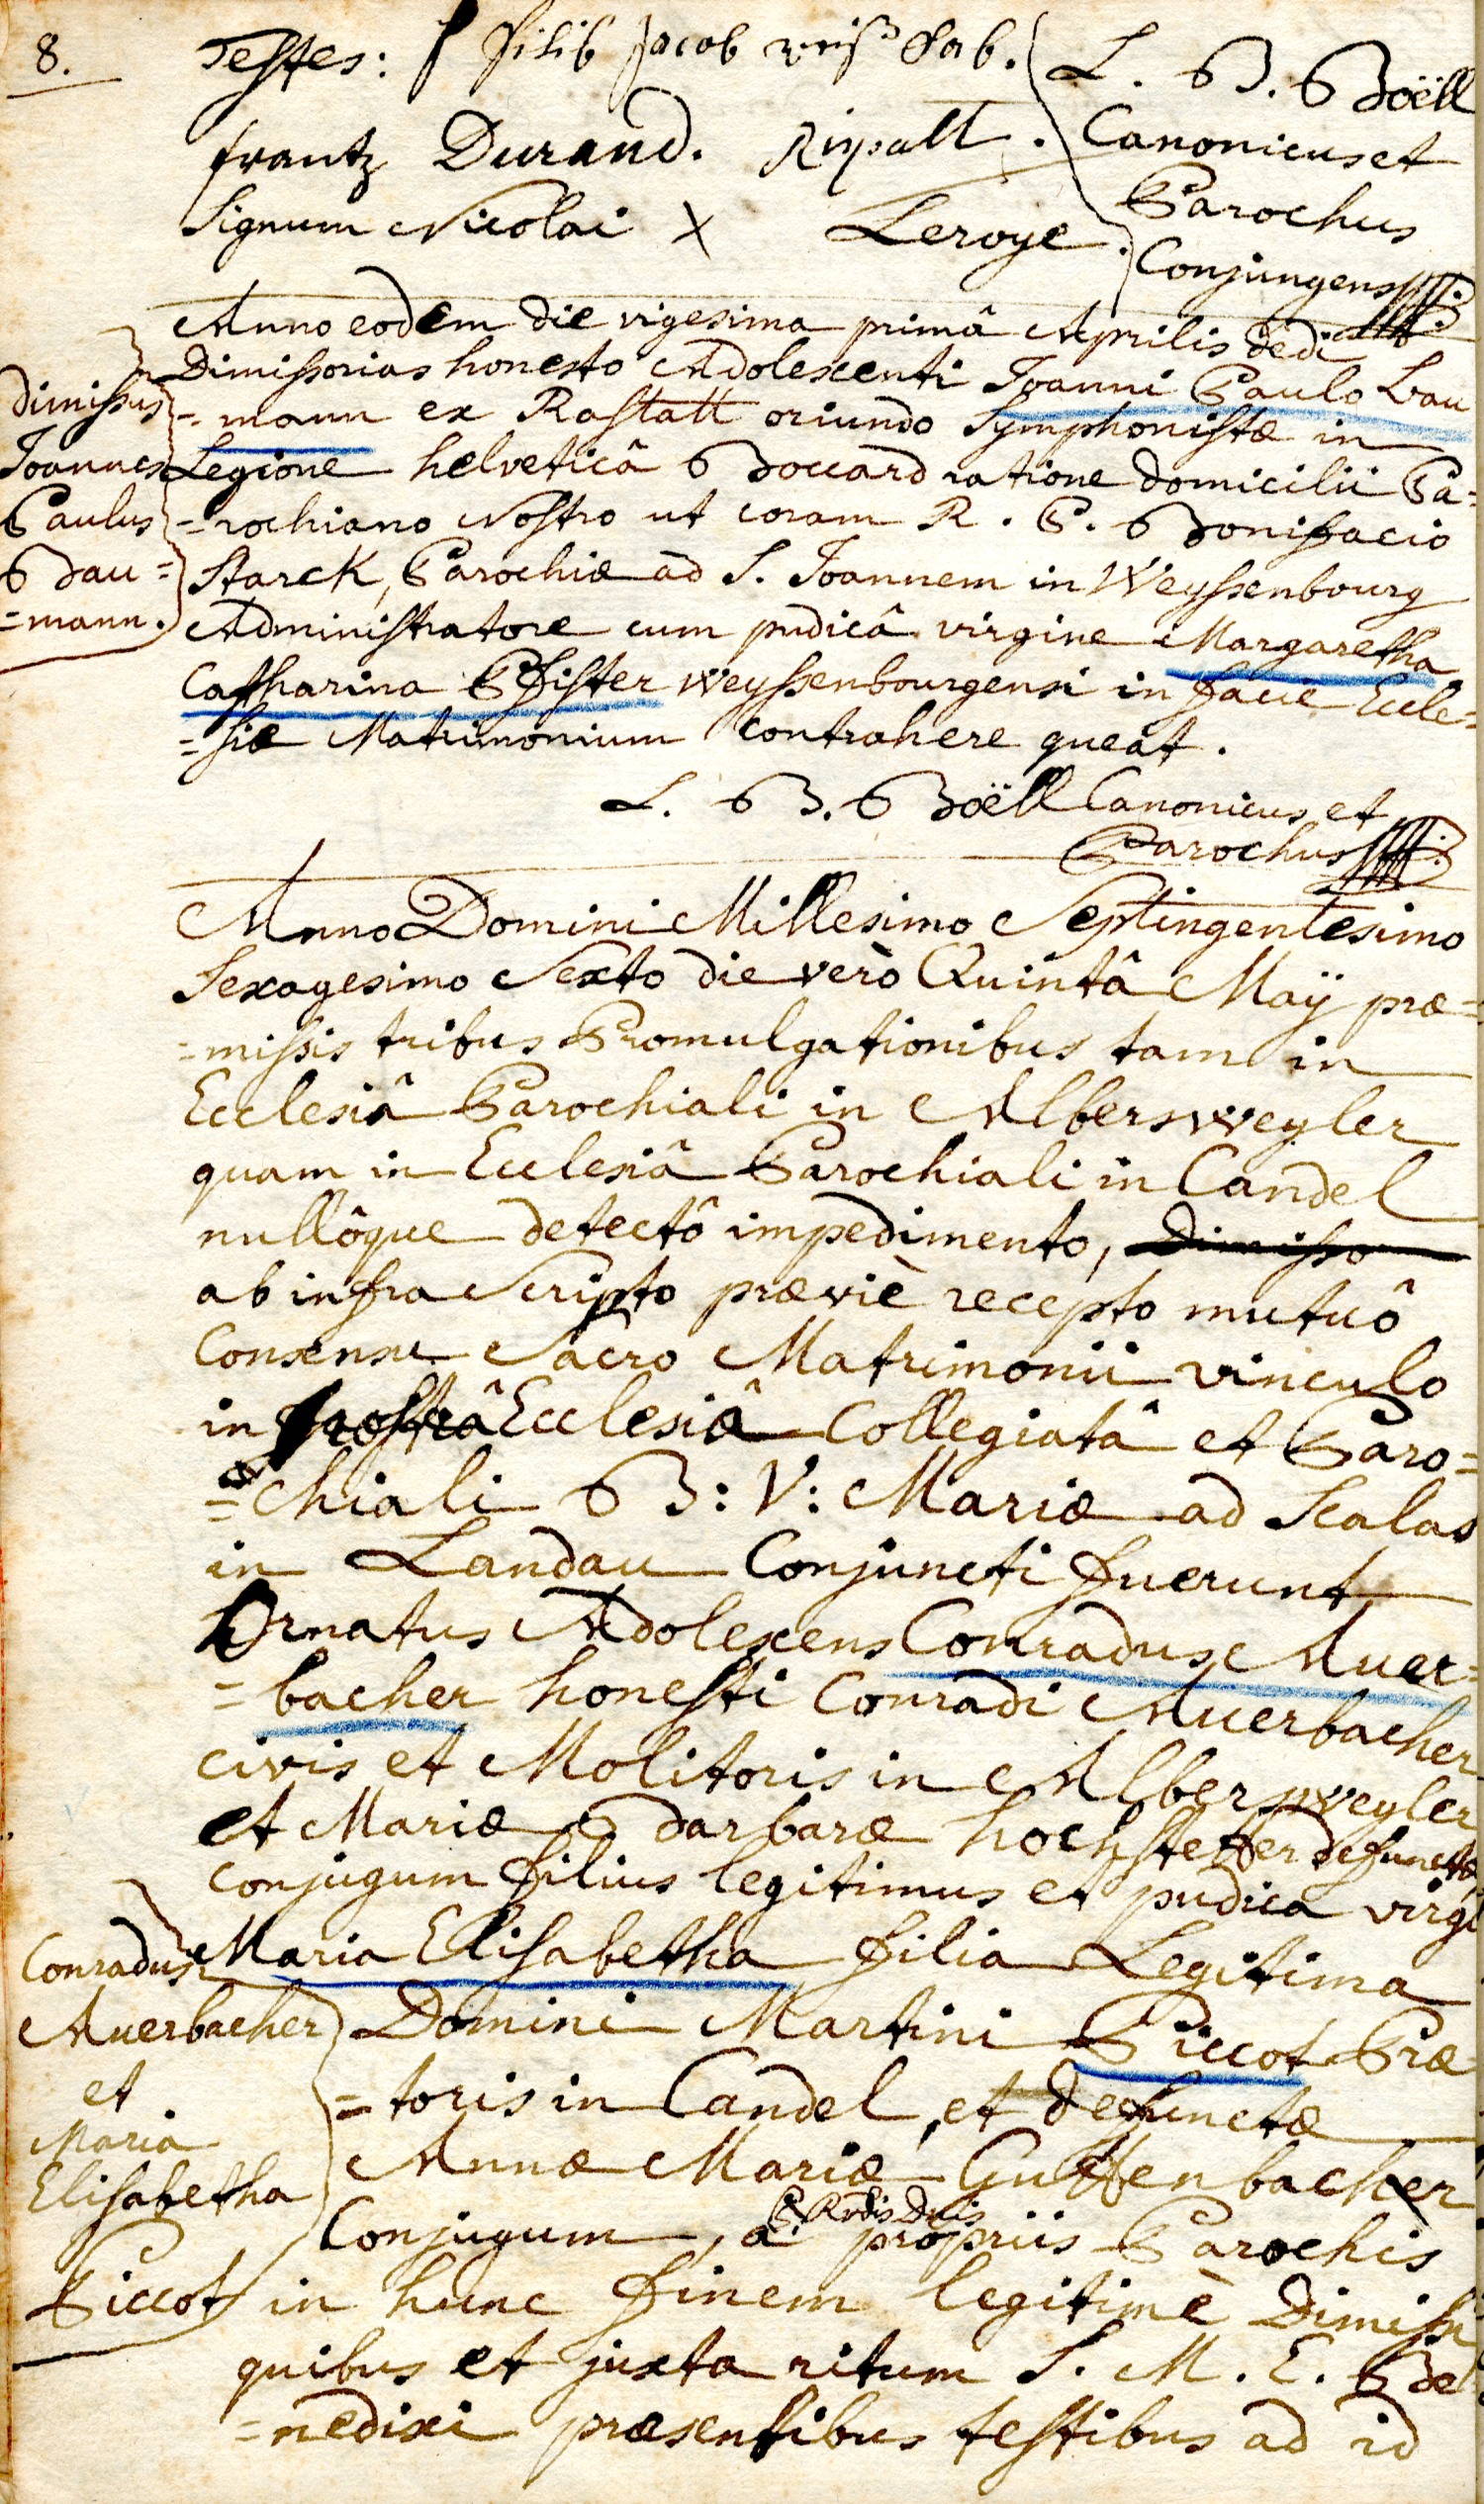 8.
Testes: filib Jacob weiß Sab.
frantz Durand. Ripalt.
Signum Nicolai X Leroye.
L. B. Boëll
Canonicus et
Parochus
Conjungens
Anno eodem die vigesima primâ Aprilis dedi
Dimissorias honesto Adolescenti Joanni Paulo Bau
=mann ex Rastatt oriundo Symphonistæ in
Legione helveticâ Boccard ratione domicilii Pa=
=rochiano Nostro ut coram R. P. Bonifacio
Starck, Parochiæ ad S. Joannem in Weyssenbourg
Administratore cum pudicâ virgine Margaretha
Catharina Pfister Weyssenbourgensi in facie Eccle=
=siæ Matrimonium contrahere queat.
dimissus
Joannes
Paulus
Bau=
=mann.
L. B. Boëll Canonicus et
Parochus
Anno Domini Millesimo Septingentesimo
Sexagesimo Sexto die verò Quintâ Maÿ præ=
=missis tribus Promulgationibus tam in
Ecclesiâ Parochiali in Albersweyler
quam in Ecclesiâ Parochiali in Candel
nullôque detectô impedimento, Dimisso
ab infra Scripto præviè recepto mutuô
Consensu Sacro Matrimonii vinculo
in nostrâ Ecclesiâ Collegiatâ et Paro=
=chiali B: V: Mariæ ad Scalas
in Landau Conjuncti fuerunt
Ornatus Adolescens Conradus Auer=
=bacher honesti Conradi Auerbacher
civis et Molitoris in Albersweyler
et Mariæ Barbaræ hochstetter defunctæ
conjugum filius legitimus et pudica virgo
Maria Elisabetha filia Legitima
Domini Martini Piccot Præ
=toris in Candel, et defunctæ
Annæ Mariæ Guttenbacher
Conjugum, à Rndis Dnis propriis Parochis
in hunc finem legitimè Dimissi
quibus et juxta ritum S. M. E. Be
=nedixi præsentibus testibus ad id
Conradus
Auerbacher
et
Maria
Elisabetha
Piccot